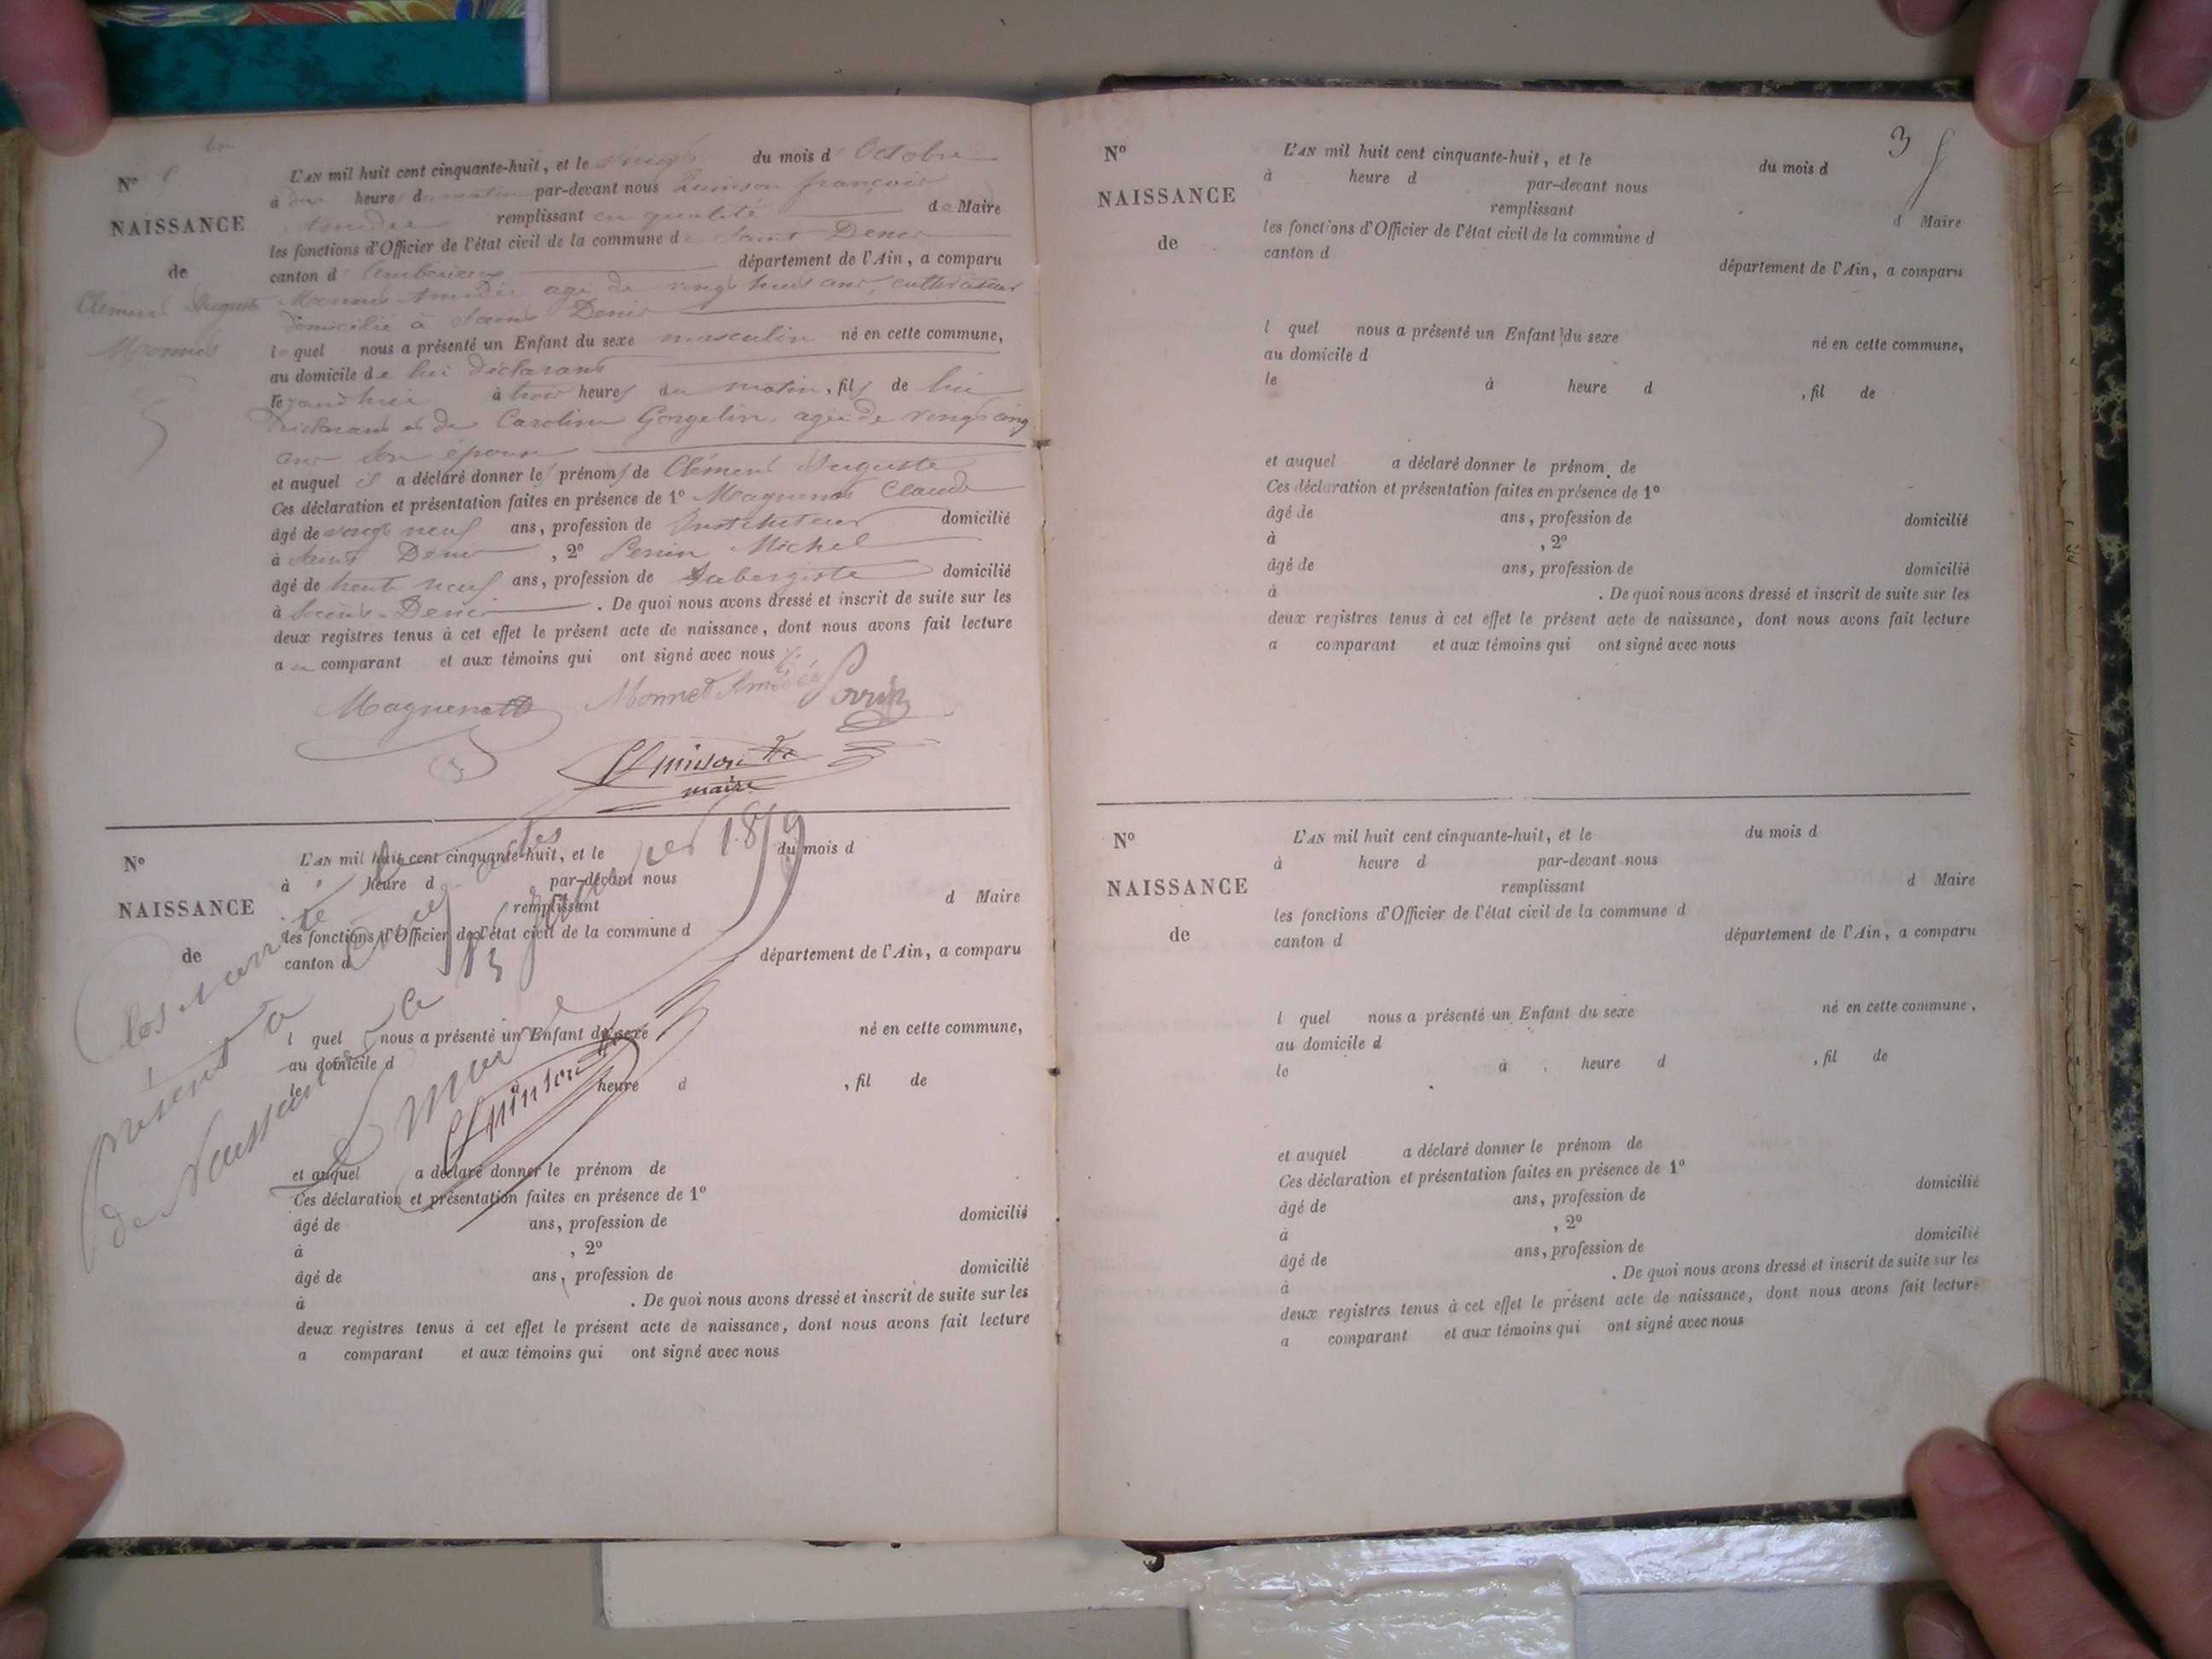 Nº
NAISSANCE
de
Clément Auguste
Monnet
L'AN mil huit cent cinquante-huit, et le vingt du mois d' Octobre
à dix heures du matin par-devant nous Quinson françois
Amédée remplissant en qualité de Maire
les fonctions d'Officier de l'état civil de la commune de Saint Denis
canton d' Ambérieux département de l'Ain, a comparu
Monnet Amédée agé de vingt huit ans, cultivateur
domicilié à Saint Denis
lequel nous a présenté un Enfant du sexe masculin né en cette commune,
au domicile de lui déclarant
le jourd'hui à trois heures du matin, fils de lui
Déclarant et de Caroline Gorgelin, agée de vingt cinq
ans son épouse
et auquel il a déclaré donner les prénoms de Clément Auguste
Ces déclaration et présentation faites en présence de 1º Magnenot Claude
âgé de vingt neuf ans, profession de Instituteur domicilié
à Saint Denis, 2º Perrin Michel
âgé de trente neuf ans, profession de aubergiste domicilié
à Saint-Denis. De quoi nous avons dressé et inscrit de suite sur les
deux registres tenus à cet effet le présent acte de naissance, dont nous avons fait lecture
au comparant et aux témoins qui ont signé avec nous
Magnenot Monnet Amédée Perrin
Quinson
maire
Nº
NAISSANCE
de
L'AN mil huit cent cinquante-huit, et le du mois d
à heure d par-devant nous
remplissant d Maire
les fonctions d'Officier de l'état civil de la commune d
canton d département de l'Ain, a comparu
l quel nous a présenté un Enfant du sexe né en cette commune,
au domicile d
le à heure d , fil de
et auquel a déclaré donner le prénom de
Ces déclaration et présentation faites en présence de 1º
âgé de ans, profession de domicilié
à , 2º
âgé de ans, profession de domicilié
à . De quoi nous avons dressé et inscrit de suite sur les
deux registres tenus à cet effet le présent acte de naissance, dont nous avons fait lecture
a comparant et aux témoins qui ont signé avec nous
Clos et arrêté le
présent des actes
de Naissance
Janvier 1859
Le Maire
Quinson
3
Nº
NAISSANCE
de
L'AN mil huit cent cinquante-huit, et le du mois d
à heure d par-devant nous
remplissant d Maire
les fonctions d'Officier de l'état civil de la commune d
canton d département de l'Ain, a comparu
l quel nous a présenté un Enfant du sexe né en cette commune,
au domicile d
le à heure d , fil de
et auquel a déclaré donner le prénom de
Ces déclaration et présentation faites en présence de 1º
âgé de ans, profession de domicilié
à , 2º
âgé de ans, profession de domicilié
à . De quoi nous avons dressé et inscrit de suite sur les
deux registres tenus à cet effet le présent acte de naissance, dont nous avons fait lecture
a comparant et aux témoins qui ont signé avec nous
Nº
NAISSANCE
de
L'AN mil huit cent cinquante-huit, et le du mois d
à heure d par-devant nous
remplissant d Maire
les fonctions d'Officier de l'état civil de la commune d
canton d département de l'Ain, a comparu
l quel nous a présenté un Enfant du sexe né en cette commune,
au domicile d
le à heure d , fil de
et auquel a déclaré donner le prénom de
Ces déclaration et présentation faites en présence de 1º
âgé de ans, profession de domicilié
à , 2º
âgé de ans, profession de domicilié
à . De quoi nous avons dressé et inscrit de suite sur les
deux registres tenus à cet effet le présent acte de naissance, dont nous avons fait lecture
a comparant et aux témoins qui ont signé avec nous